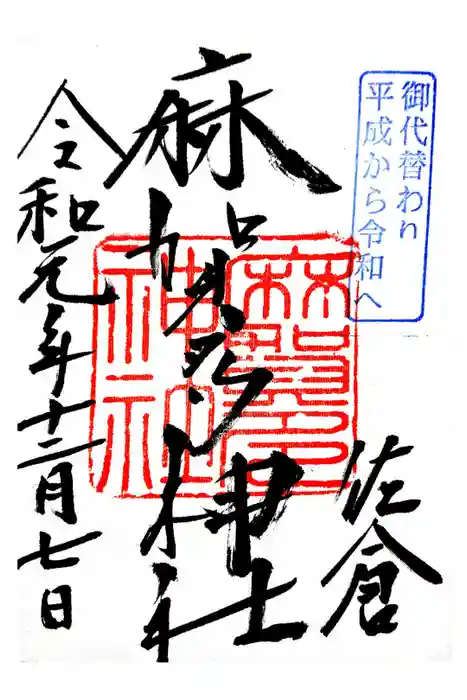 御代替わり
平成から令和へ
佐倉
麻賀多神社
麻賀多
神社
令和元年十二月七日